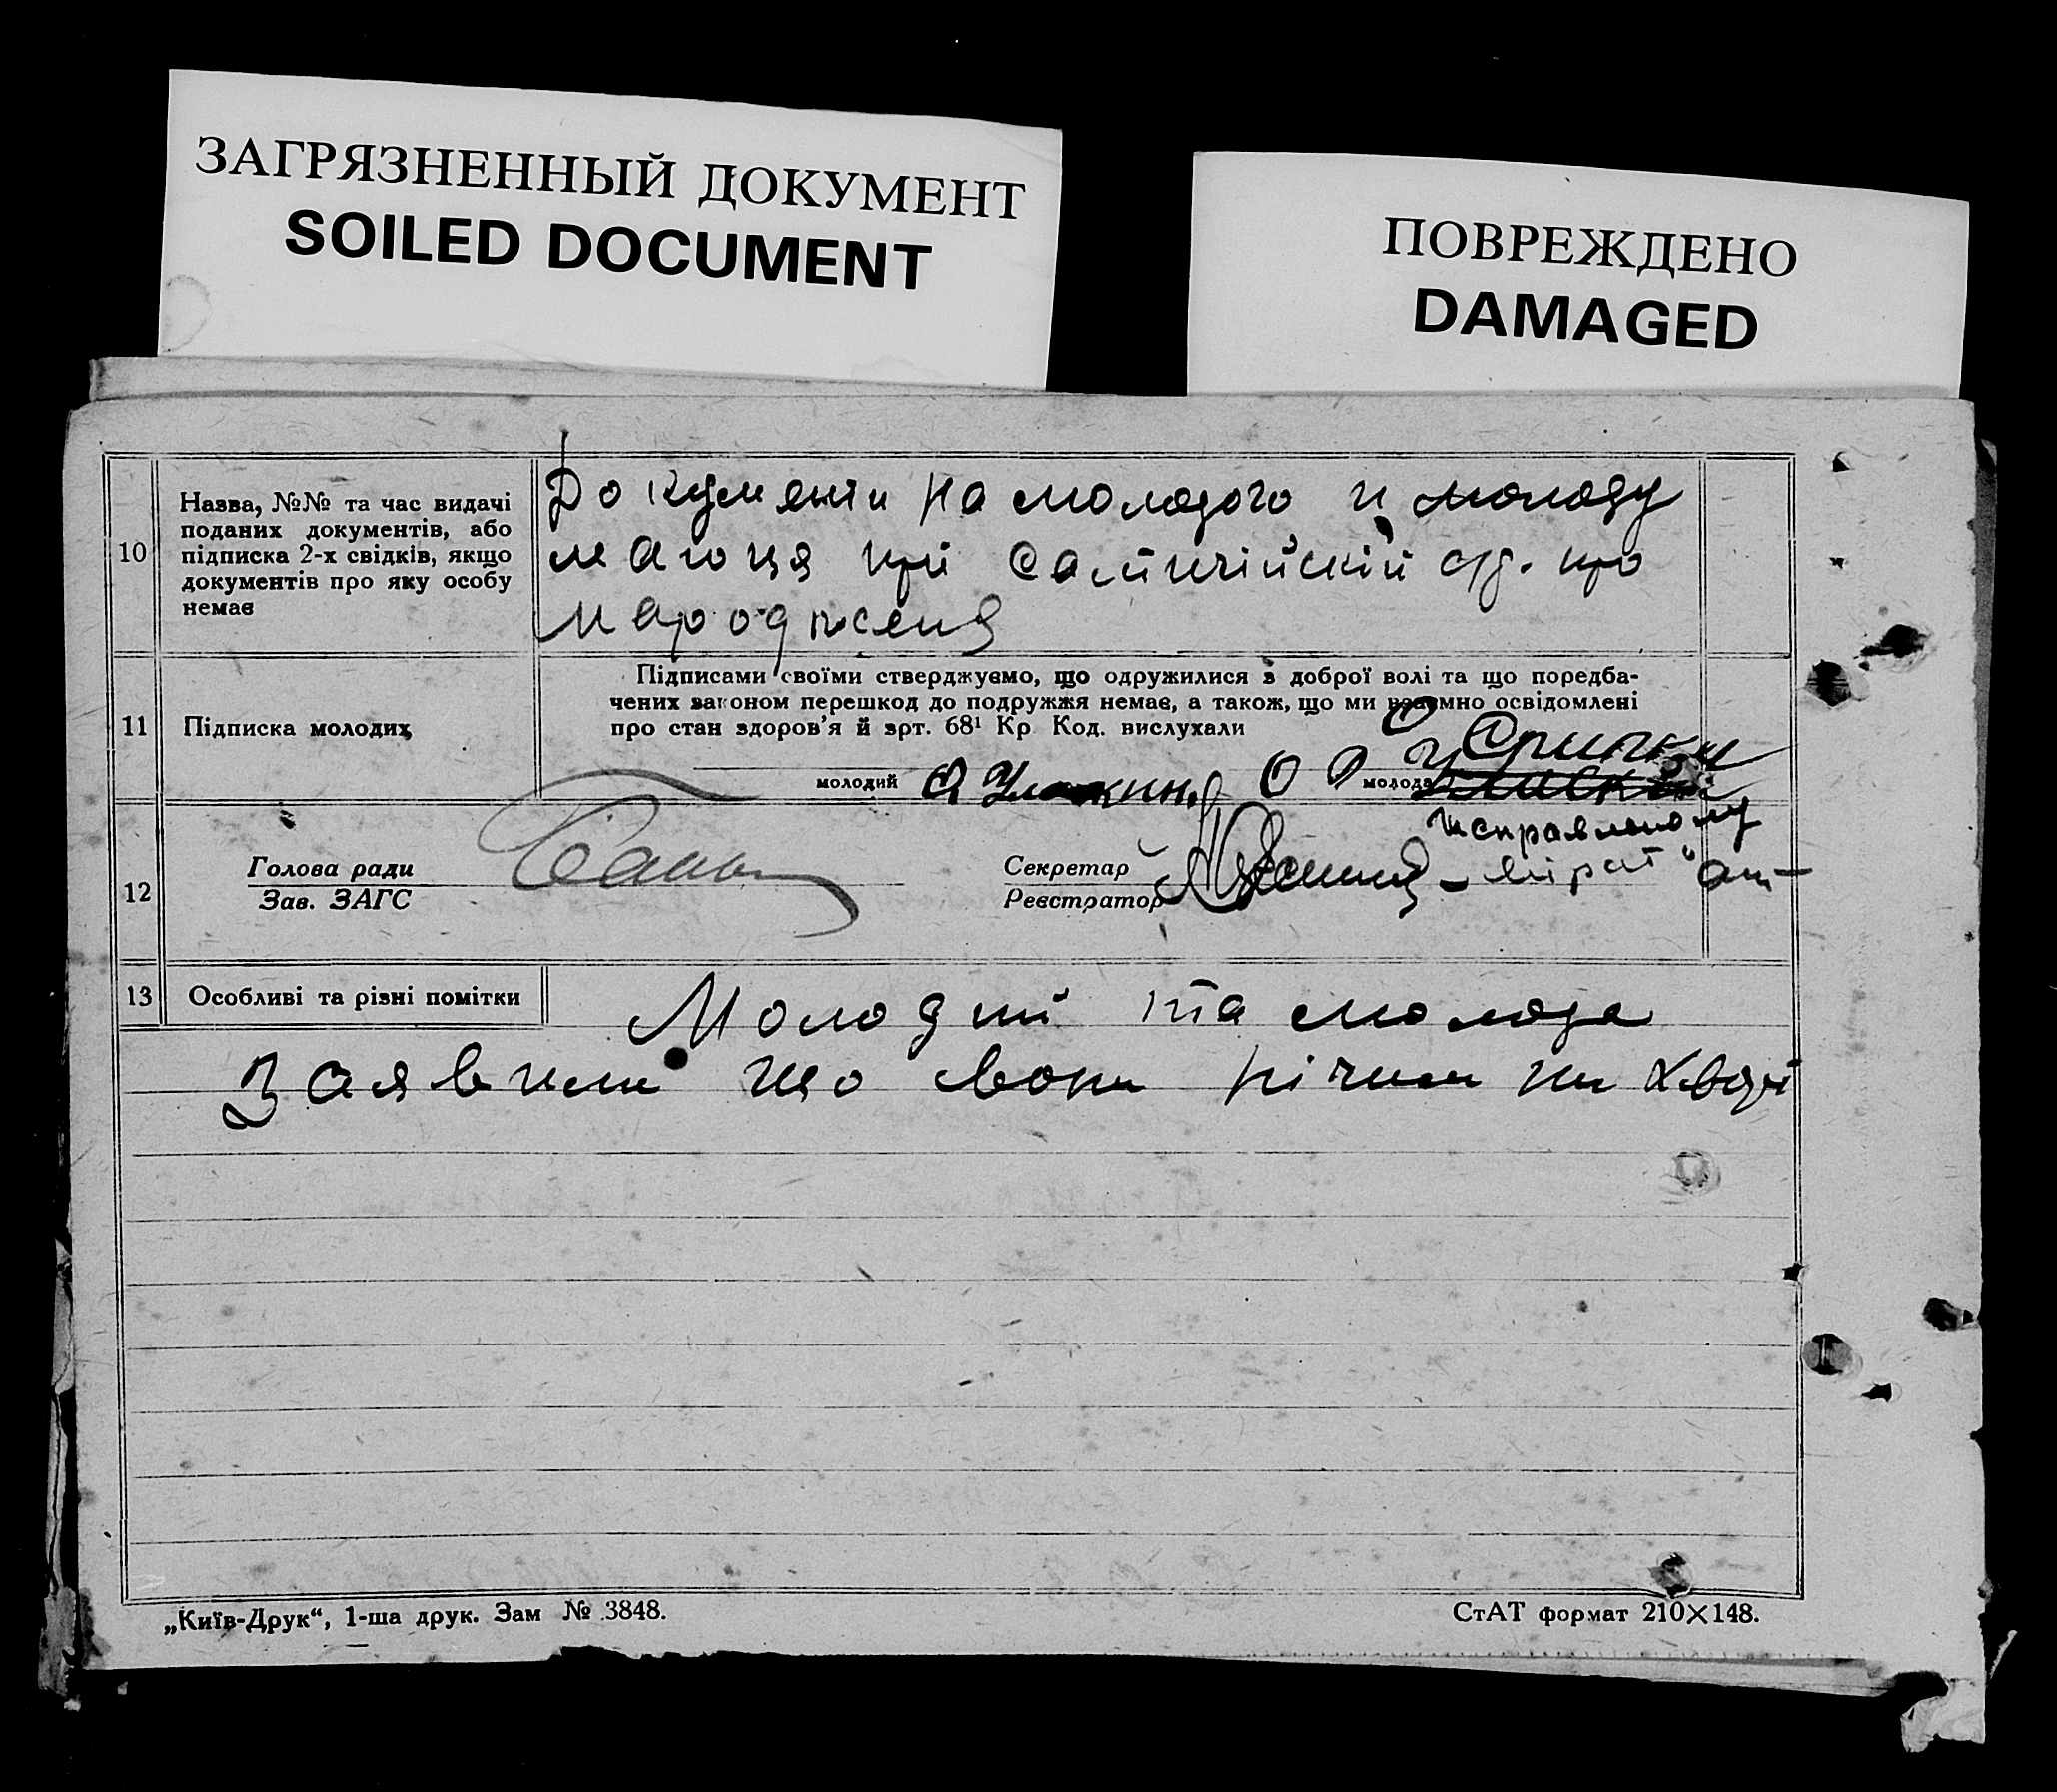 ЗАГРЯЗНЕННЫЙ ДОКУМЕНТ
SOILED DOCUMENT
ПОВРЕЖДЕНО
DAMAGED
10
Назва, №№ та час видачі
поданих документів, або
підписка 2-х свідків, якщо
документів про яку особу
немає
Документи на молодого и молоду
маюця при с/р. про
народженя
11
Підписка молодих
Підписами своїми стверджуємо, що одружилися з доброї волі та що поредба-
чених законом перешкод до подружжя немає, а також, що ми взаємно освідомлені
про стан здоров'я й арт. 68¹ Кр Код. вислухали
молодий
молода
исправленому
вірит
12
Голова ради
Зав. ЗАГС
Секретар
Реєстратор
13
Особливі та різні помітки
Молодий та молода
Заявили що вони нічим ни хворі
„Київ-Друк“, 1-ша друк. Зам № 3848.
СтАТ формат 210×148.